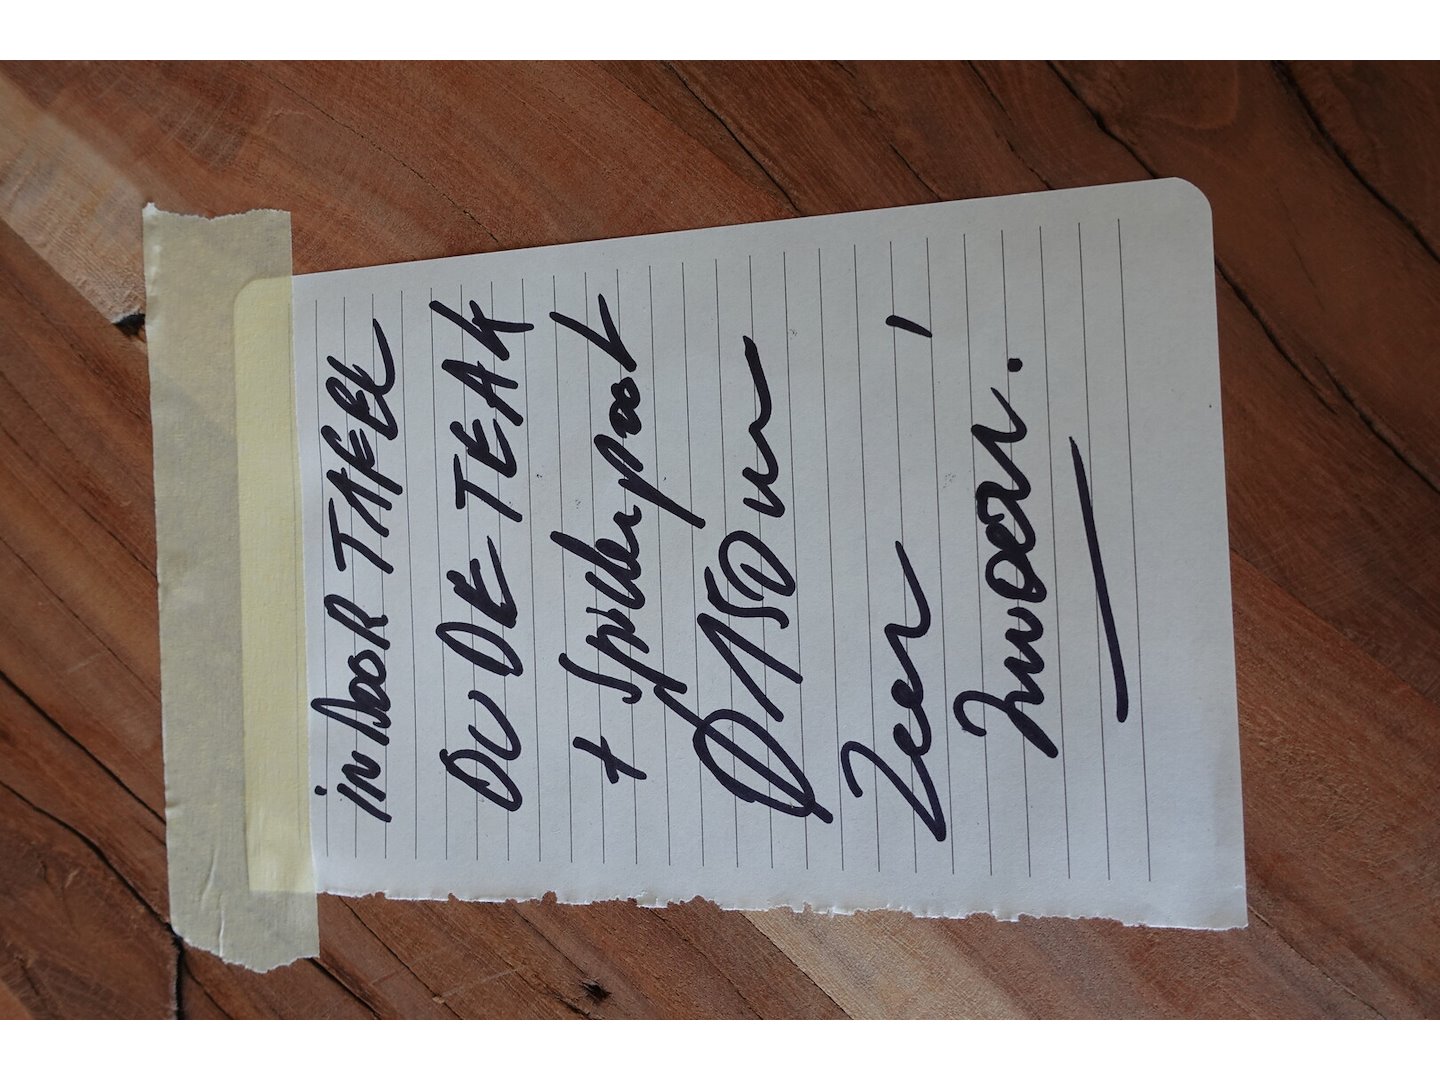 inDOOR TAFEL
OUDE TEAK
+ Spiderpoot
Ø 150 cm
Zeer
Zwaar.